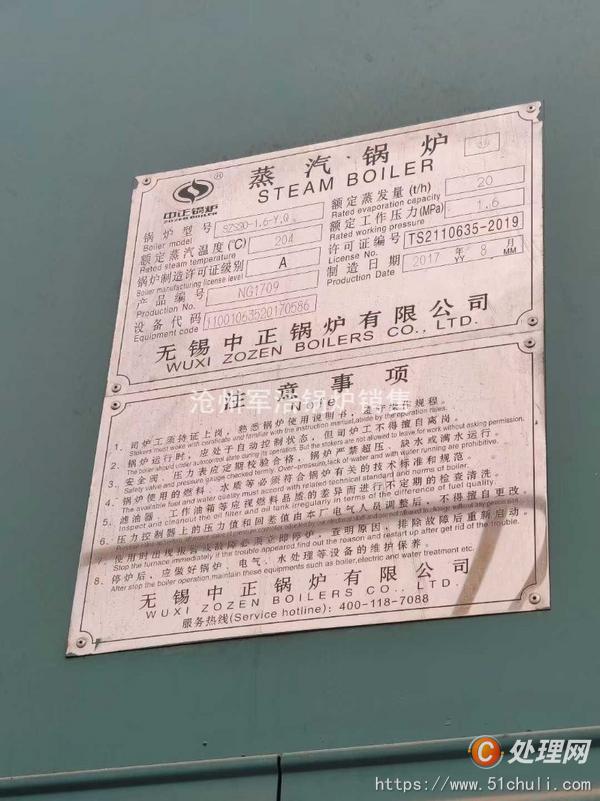 中正锅炉
ZOZEN BOILER
®
蒸汽锅炉
STEAM BOILER
锅炉型号 SZS20-1.6-Y.Q
Boiler model
额定蒸发量(t/h) 20
Rated evaporation capacity
额定蒸汽温度(℃) 204
Rated steam temperature
额定工作压力(MPa) 1.6
Rated working pressure
锅炉制造许可证级别 A
Boiler manufacturing license level
许可证编号 TS2110635-2019
License No.
产品编号 NG1709
Production No.
制造日期 2017 年 8 月
Production Date YY MM
设备代码 11001063520170586
Equipment code
无锡中正锅炉有限公司
WUXI ZOZEN BOILERS CO., LTD.
注意事项
Note
沧州军浩锅炉销售
1、司炉工须持证上岗，熟悉锅炉使用说明书，遵守操作规程。
Stokers must woke with certificate and familiar with the instruction manual, abide by the operation rules.
2、锅炉运行时，应处于自动控制状态，但司炉工不得擅自离岗。
The boiler should under autocontrol during its operation. But the stokers are not allowed to leave for work without asking permission.
3、安全阀、压力表应定期校验合格，锅炉严禁超压、缺水或满水运行。
Safety valve and pressure gauge checked termly. Over-pressure, lack of water and with water running are prohibitive.
4、锅炉使用的燃料、水质等必须符合锅炉有关的技术标准和规范。
The available fuel and water quality must accord with related technical standard and norms of boiler.
5、滤油器、工作油箱等应视燃料品质的差异而进行不定期的检查清洗。
Inspect and cleanout the oil filter and oil tank irregulary in terms of the difference of fuel quality.
6、压力控制器上的压力值和回差值由本厂电气人员调整后，不得擅自更改。
7、使用时出现报警或故障必须立即停炉，查明原因，排除故障后重新启动。
Stop the furnace immediately if the trouble appeared find out the reason and restart up after get rid of the trouble.
8、停炉后，应做好锅炉、电气、水处理等设备的维护保养。
After stop the boiler operation, maintain these equipments such as boiler, electric and water treatment etc.
无锡中正锅炉有限公司
WUXI ZOZEN BOILERS CO., LTD.
服务热线(Service hotline): 400-118-7088
C 处理网
https://www.51chuli.com